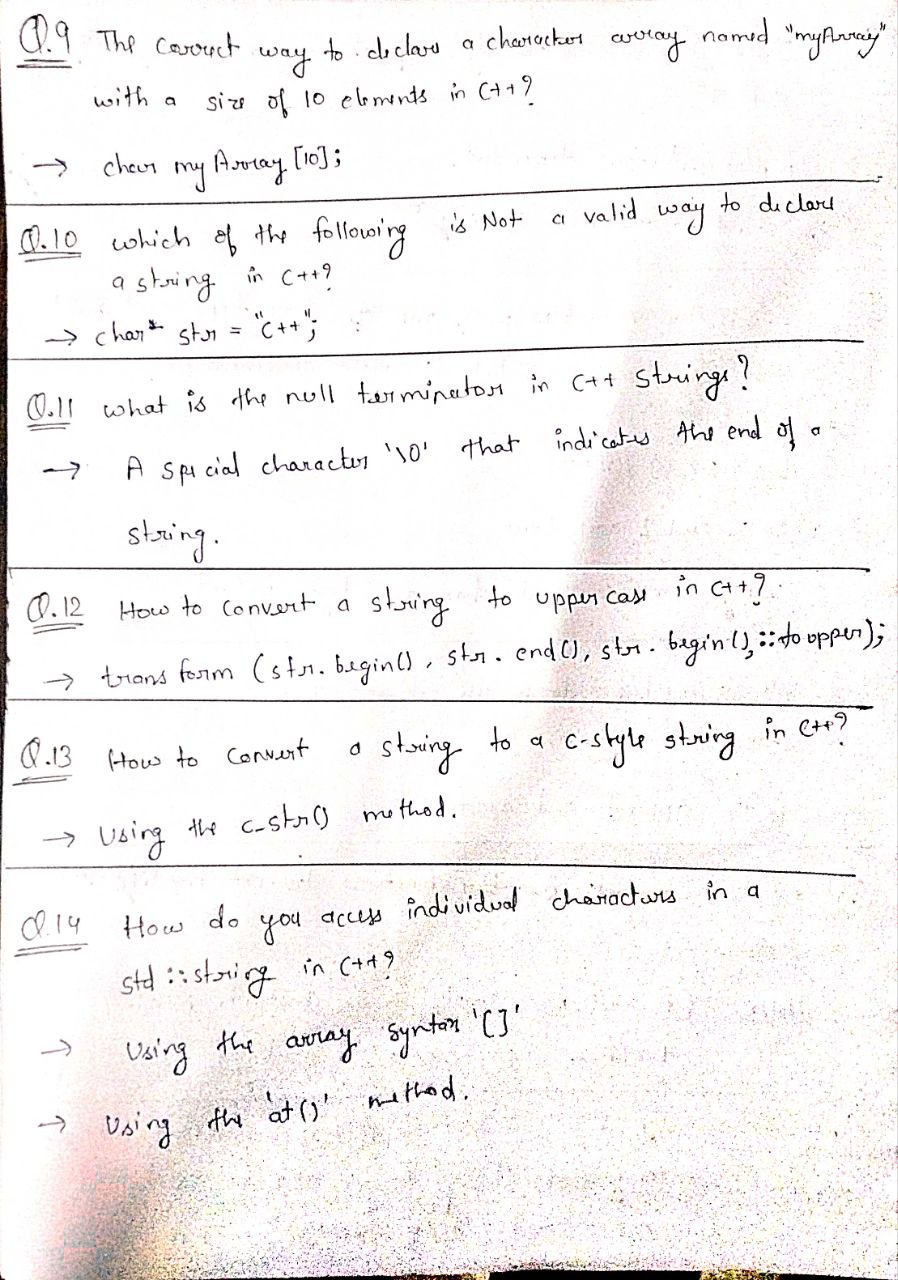 Q.9 The correct way to declare a character array named "myArray"
with a size of 10 elements in C++?
→ char myArray [10];
Q.10 which of the following is Not a valid way to declare
a string in C++?
→ char* str = "C++";
Q.11 what is the null terminator in C++ Strings?
→ A special character '\0' that indicates the end of a
string.
Q.12 How to convert a string to uppercase in C++?
→ transform (str.begin(), str.end(), str.begin(), ::toupper);
Q.13 How to convert a string to a c-style string in C++?
→ Using the c_str() method.
Q.14 How do you access individual characters in a
std::string in C++?
→ Using the array syntax '[]'
→ Using the 'at()' method.